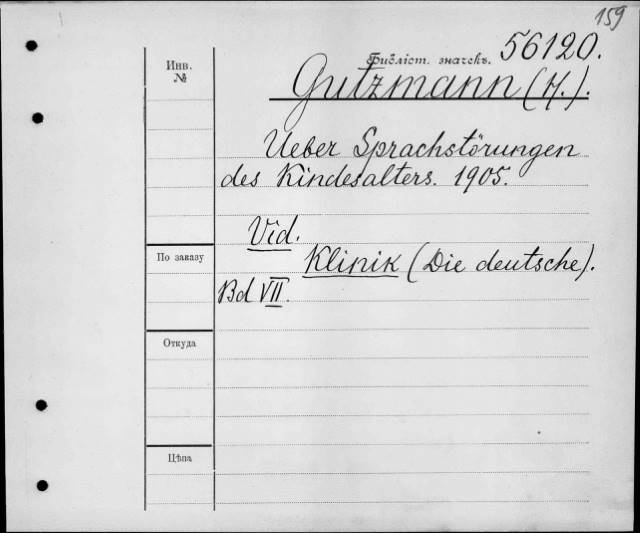 159
Инв.
№
Библіот. значекъ. 56120.
Gutzmann (H.).
Ueber Sprachstörungen
des Kindesalters. 1905.
Vid.
По заказу
Klinik (Die deutsche).
Bd VII.
Откуда
Цѣна